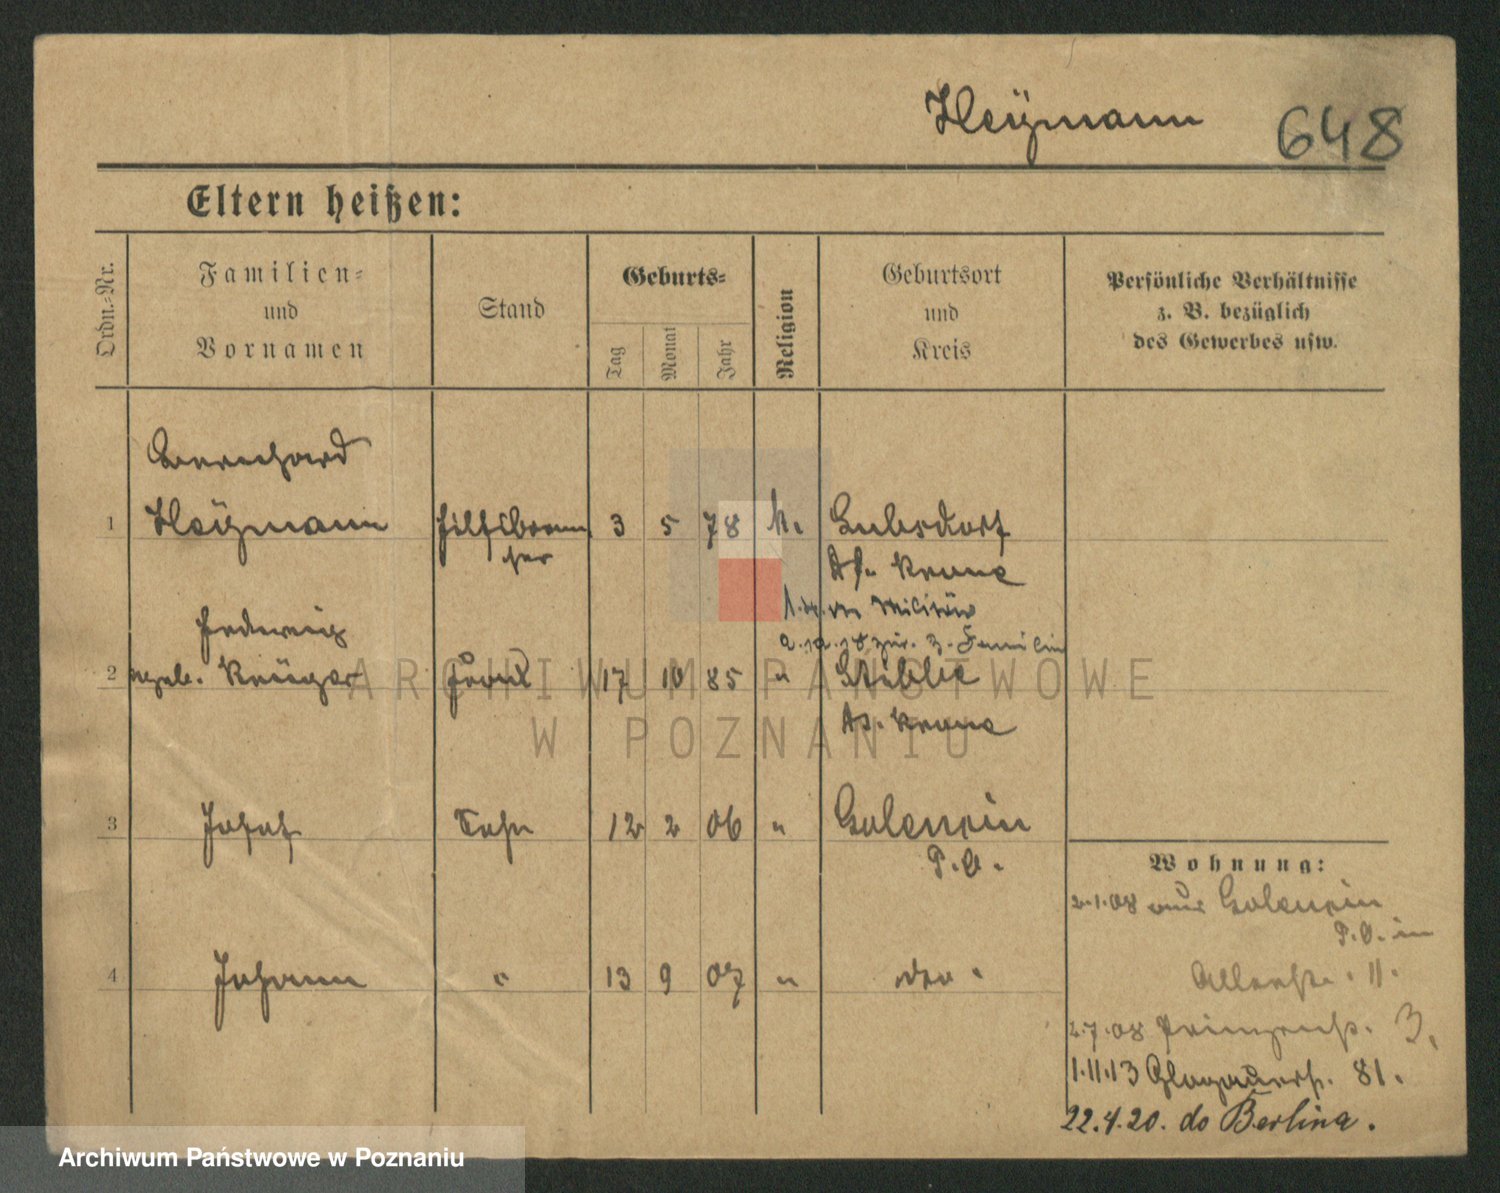 Heÿmann 648
Eltern heißen:
Ordn.-Nr. Familien- und Vornamen Stand Geburts- Tag Monat Jahr Religion Geburtsort und Kreis Persönliche Verhältnisse z. B. bezüglich des Gewerbes usw.
Bernhard
1 Heÿmann Hilfsbrem
ser 3 5 78 k. Dt. Krone
Militär
2. 12. 18 zur. z. Familie
Hedwig
2 geb. Krüger Frau 17 10 85 " Stibbe
Dt. Krone
3 Josef Sohn 12 2 06 " Golencin
P. O.
4 Johann " 13 9 07 " do.
Wohnung:
2.1.08 aus Golencin
P. O. in
11.
2.7.08 Prinzenstr. 3.
1.11.13 Glogauerstr. 81.
22.4.20. do Berlina.
ARCHIWUM PAŃSTWOWE
W POZNANIU
Archiwum Państwowe w Poznaniu